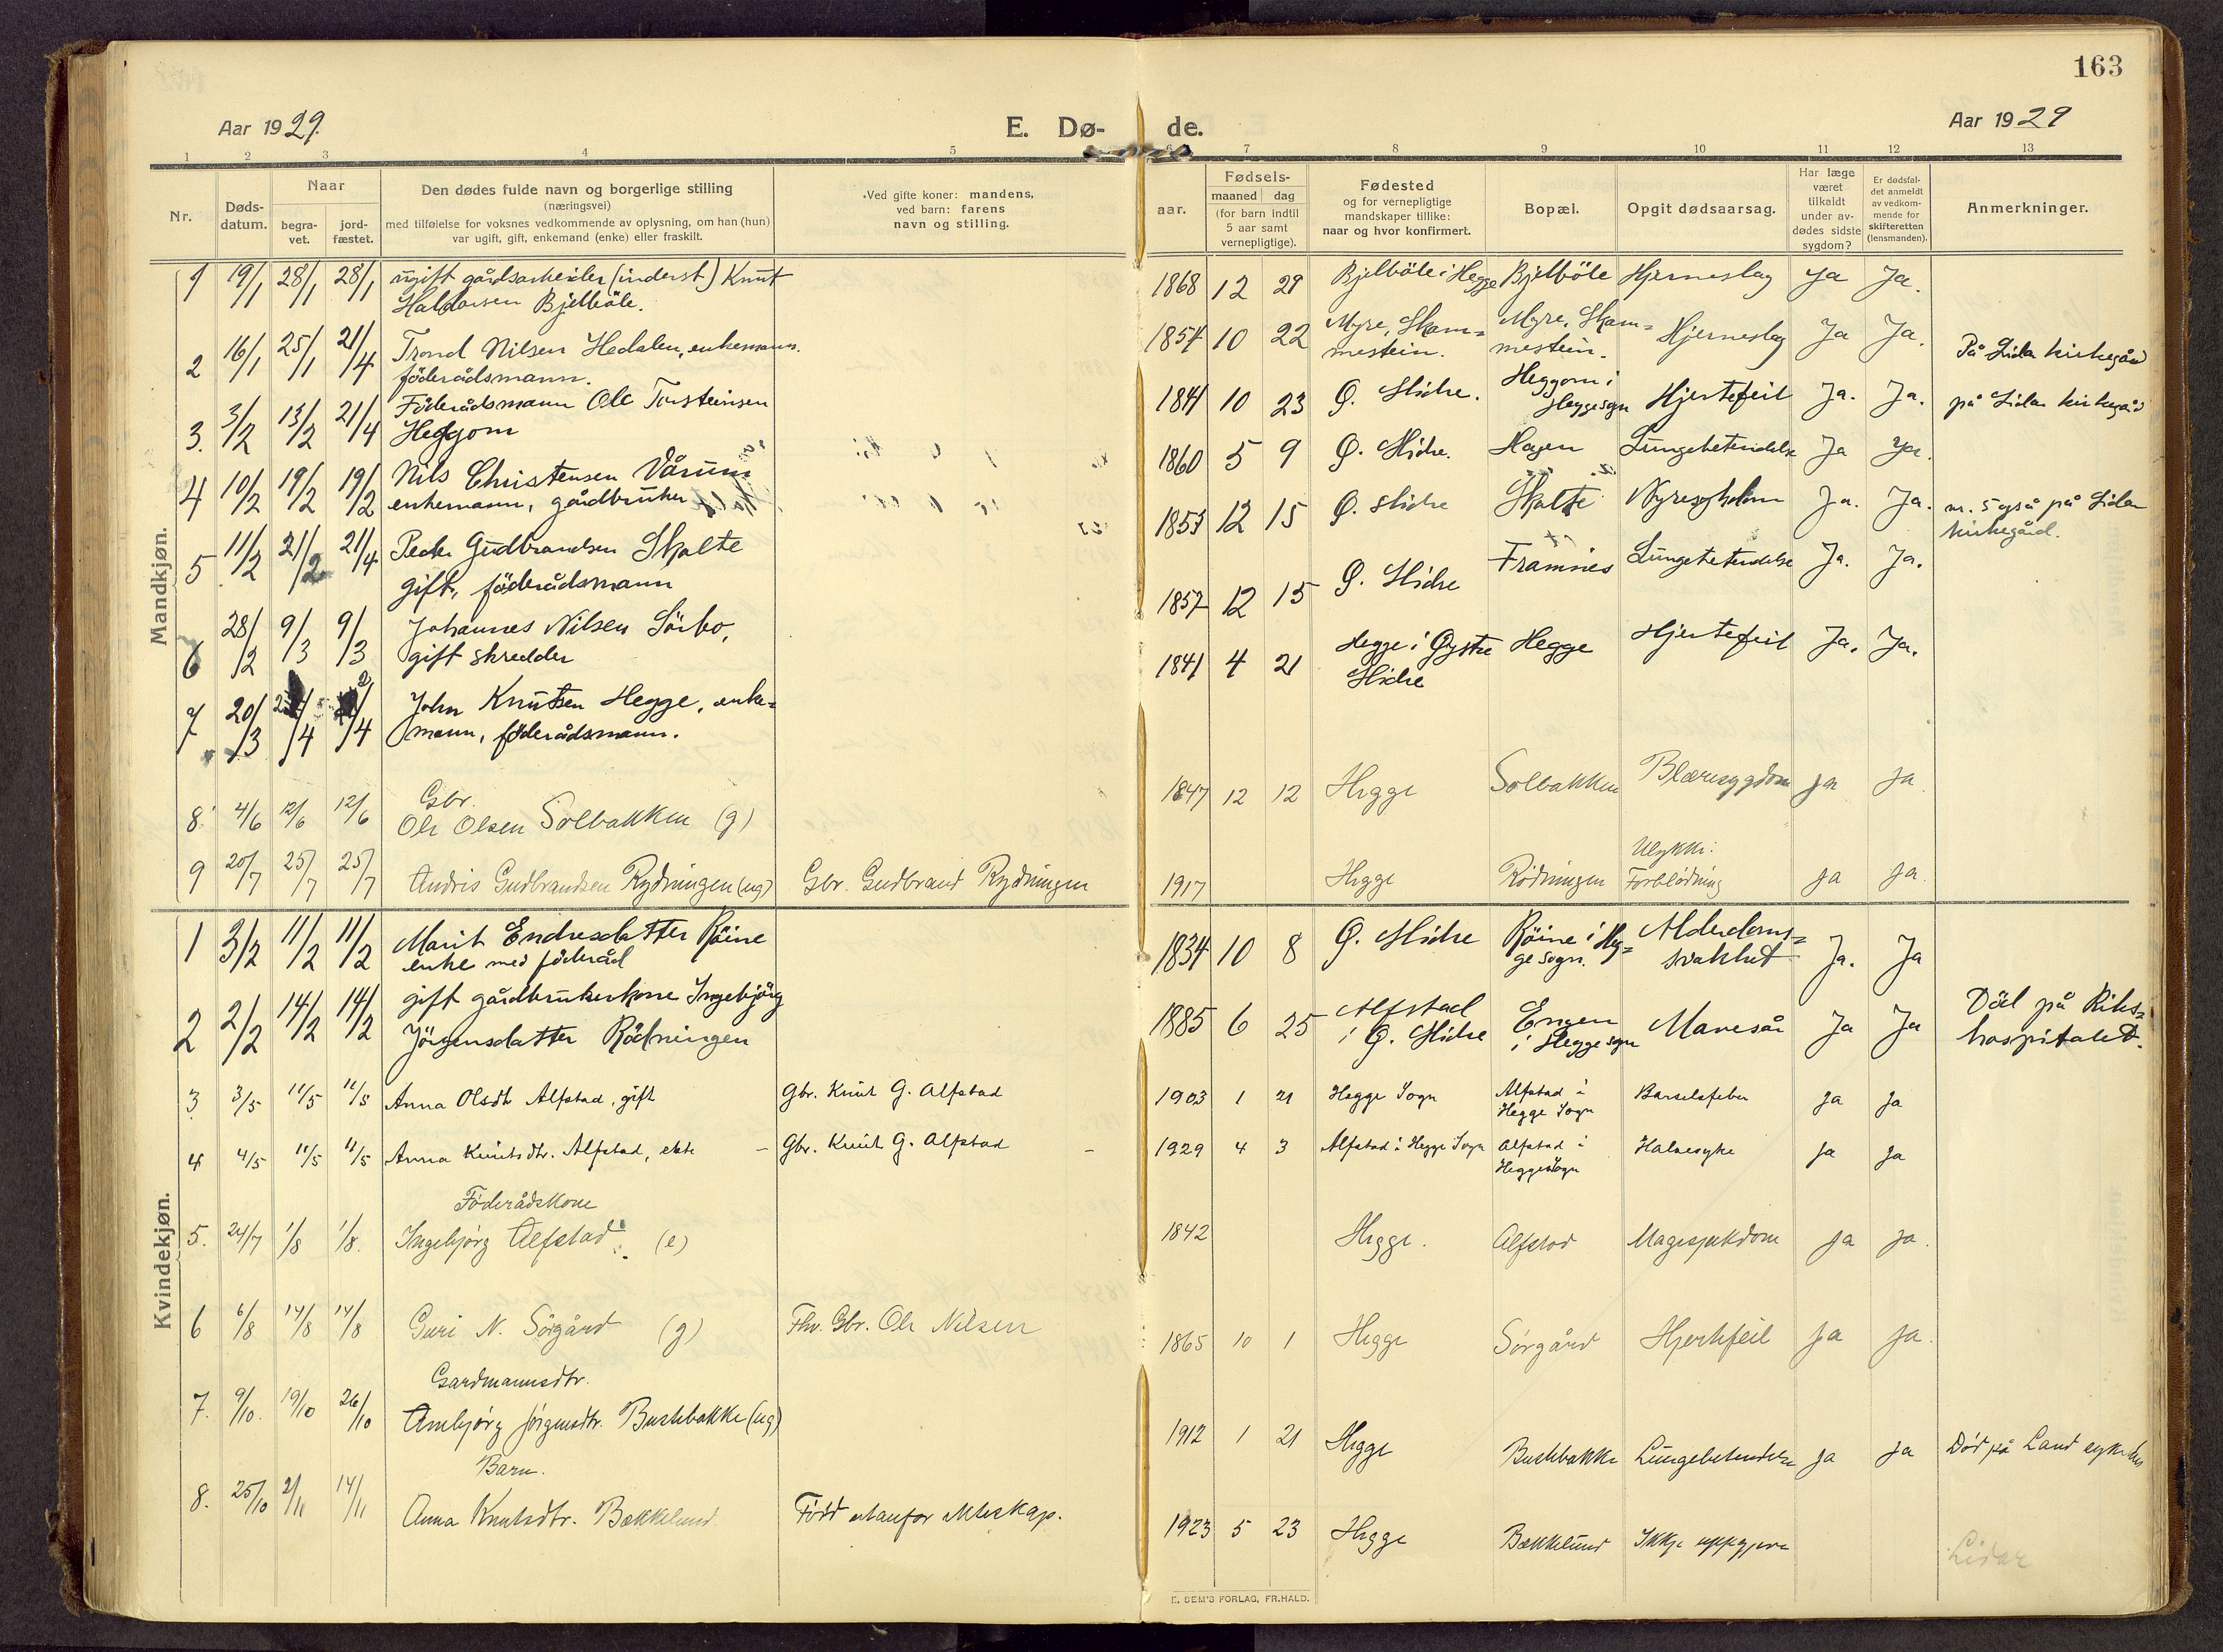 163
Aar 1929.
E. Dø-
de.
Aar 1929
1 2 3 4 5
6 7 8 9 10 11 12 13
Nr.
Døds-
datum.
Naar
begra-
vet.
jord-
fæstet.
Den dødes fulde navn og borgerlige stilling
(næringsvei)
med tilføielse for voksnes vedkommende av oplysning, om han (hun)
var ugift, gift, enkemand (enke) eller fraskilt.
Ved gifte koner: mandens,
ved barn: farens
navn og stilling.
Fødsels-
aar.
maaned dag
(for barn indtil
5 aar samt
vernepligtige).
Fødested
og for vernepligtige
mandskaper tillike:
naar og hvor konfirmert.
Bopæl.
Opgit dødsaarsag.
Har læge
været
tilkaldt
under av-
dødes sidste
sygdom?
Er dødsfal-
det anmeldt
av vedkom-
mende for
skifteretten
(lensmanden).
Anmerkninger.
Mandkjøn.
1 19/1 28/1 28/1 ugift gårdsarbeider (inderst) Knut
Haldorsen Bjelböle.
1868 12 29 Bjelböle i Hegge Bjelböle Hjerneslag Ja Ja.
2 16/1 25/1 21/4 Trond Nilsen Hedalen, enkemann.
föderådsmann.
1854 10 22 Myre, Skam=
mestein.
Myre, Skam=
mestein.
Hjerneslag Ja Ja. På Lidar kirkegård
3. 3/2 13/2 21/4 Föderådsmann Ole Torsteinsen
Heggom
1841 10 23 Ø. Slidre. Heggom i
Heggesogn
Hjertefeil Ja. Ja. på Lidar kirkegård
4 10/2 19/2 19/2 Nils Christensen Vårum
enkemann, gårdbruker
1860 5 9 Ø. Slidre. Hagen Lungebetendelse Ja Ja.
5 11/2 21/2 21/4 Peder Gudbrandsen Skalte
gift, föderådsmann
1853 12 15 Ø. Slidre Skalte Nyresygdom Ja. Ja. nr. 5 også på Lidar
kirkegård.
6 28/2 9/3 9/3 Johannes Nilsen Sörbo,
gift skredder
1857 12 15 Ø. Slidre Framnes Lungebetendelse Ja. Ja.
7 20/3 /4 /4 John Knutsen Hegge, enke=
mann, föderådsmann.
1841 4 21 Hegge i Øystre
Slidre
Hegge Hjertefeil Ja. Ja.
8 4/6 12/6 12/6 Gbr.
Ole Olsen Solbakken (g)
1847 12 12 Hegge Solbakken Blæresygdom ja ja
9 20/7 25/7 25/7 Andris Gudbrandsen Rydningen (ug) Gbr. Gudbrand Rydningen
1917 Hegge Rödningen Ulykke:
Forblödning
ja ja.
Kvindekjøn.
1 3/2 11/2 11/2 Marit Endresdatter Röine
enke med föderåd
1834 10 8 Ø. Slidre Röine i Heg=
ge sogn.
Alderdoms=
svakhet
Ja. Ja
2 2/2 14/2 14/2 gift gårdbrukerkone Ingebjörg
Jörgensdatter Rödningen
1885 6 25 Alfstad
i Ø. Slidre
Engen
i Heggesogn
Mavesår Ja Ja Död på Riks=
hospitalet.
3 3/5 11/5 11/5 Anna Olsdtr Alfstad, gift Gbr. Knut G. Alfstad
1903 1 21 Hegge Sogn Alfstad i
Hegge Sogn
Barselsfeber Ja Ja
4 4/5 11/5 11/5 Anna Knutsdtr. Alfstad, ekte – Gbr. Knut G. Alfstad –
1929 4 3 Alfstad i Hegge Sogn Alfstad i
Hegge Sogn
Halsesyke Ja Ja
5. 24/7 1/8 1/8. Föderådskone
Ingebjörg Alfstad (e)
1842 Hegge. Alfstad Magesjukdom ja ja.
6 6/8 14/8 14/8 Guri N. Sörgård (g) Fhv. Gbr. Ole Nilsen
1865 10 1 Hegge Sörgård Hjertefeil ja ja.
7. 9/10. 19/10 26/10 Gardmannsdtr.
Ambjörg Jörgensdtr. Buskbakke (ug)
1912 1 21 Hegge Buskbakke Lungebetendelse ja ja Död på Land sykehus
8. 25/10 2/11 14/11 Barn.
Anna Knutsdtr. Bækkelund. Född utanfor ekteskap.
1923 5 23 Hegge Bækkelund Ikkje uppgjeve
Lidar
E. SEM'S FORLAG, FR.HALD.